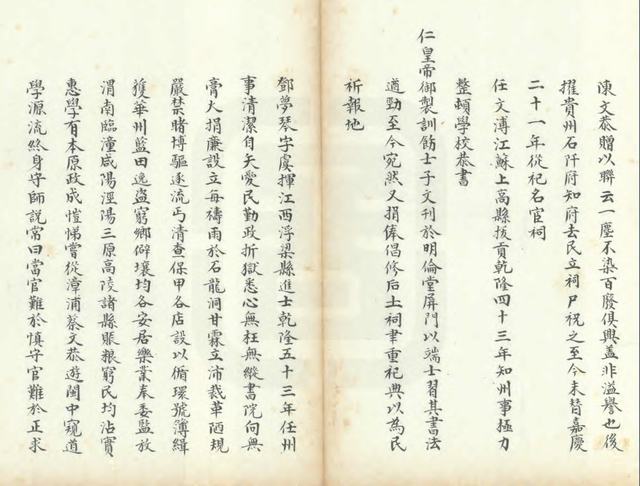 陳文恭贈以聯云一塵不染百廢俱興盖非溢譽也後
擢貴州石阡府知府去民立祠尸祝之至今未替嘉慶
二十一年從祀名宦祠
任文溥江蘇上高縣拔貢乾隆四十三年知州事極力
整頓學校恭書
仁皇帝御製訓飭士子文刊於明倫堂屏門以端士習其書法
遒勁至今宛然又捐俸倡修后土祠聿重祀典以為民
祈報地
鄧夢琴字虞揮江西浮梁縣進士乾隆五十三年任州
事清潔自矢愛民勤政折獄悉心無枉無縱書院向無
膏火捐廉設立每禱雨於石龍洞甘霖立沛裁革陋規
嚴禁賭博驅逐流丐清查保甲各店設以循環號簿緝
獲華州藍田逸盜窮鄉僻壤均各安居樂業奉委監放
渭南臨潼咸陽涇陽三原高陵諸縣賑粮窮民均沾實
惠學有本原政成愷悌嘗從漳浦蔡文恭遊閩中窺道
學源流終身守師說常曰當官難於慎守官難於正求